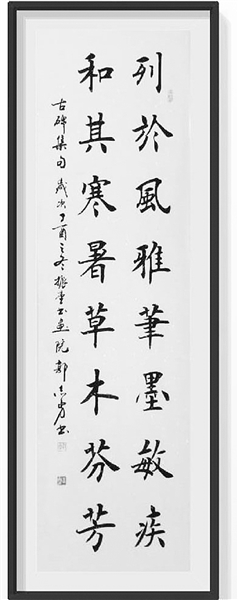 列於風雅筆墨敏疾
和其寒暑草木芬芳
古碑集句 歲次丁酉之冬 書畫院 郭志 書